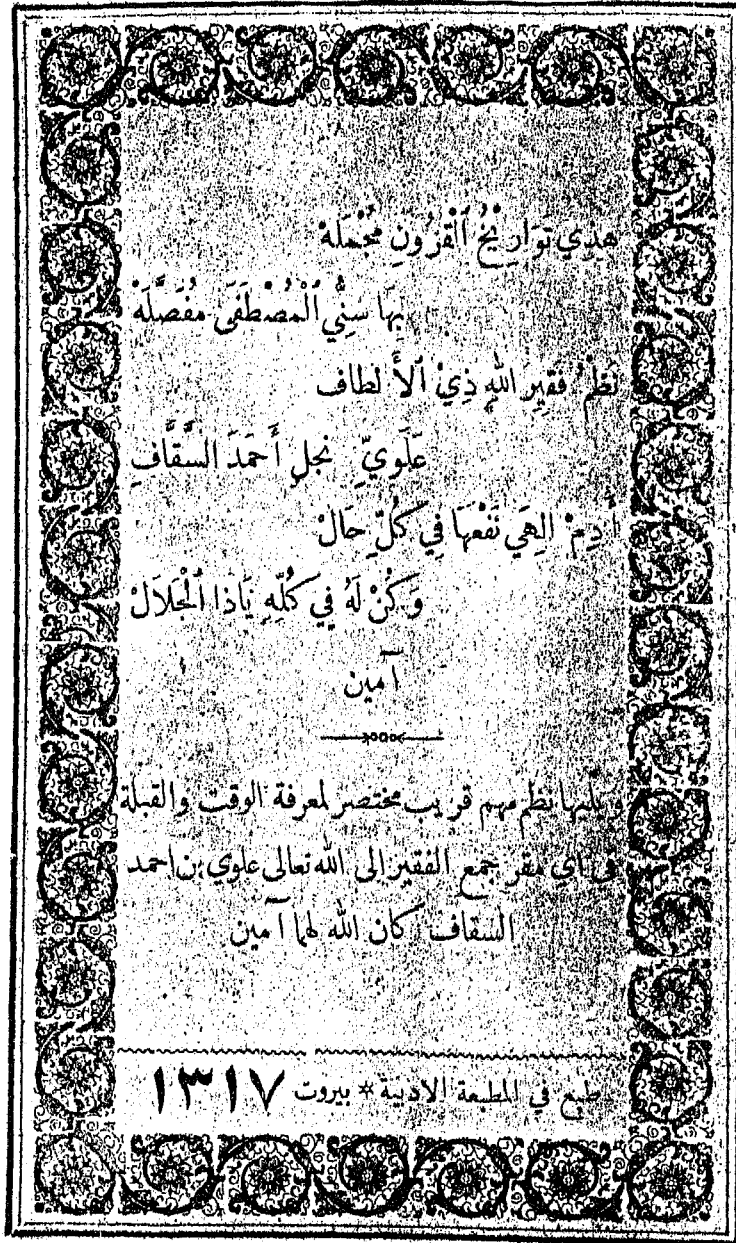 هذِي تَوَارِيْخُ ٱلْقُرُونِ مُجْمَلَهْ
بِهَا سَنِيُّ ٱلْمُصْطَفَى مُفَصَّلَهْ
نَظْمُ فَقِيرِ اللهِ ذِيْ ٱلأَلطاف
عَلَوِيِّ نجلِ أَحمَدَ السَّقَّافِ
أَدِمْ الهِي نَفْعَهَا فِي كُلِّ حَالْ
وَكُنْ لَهُ فِي كُلِّهِ يَاذَا ٱلْجَلَالْ
آمين
ويليها نظم مهم قريب مختصر لمعرفة الوقت والقبلة
في اي مقر جمع الفقير الى الله تعالى علوي بن احمد
السقاف كان الله لهما آمين
طبع في المطبعة الادبية * بيروت ١٣١٧